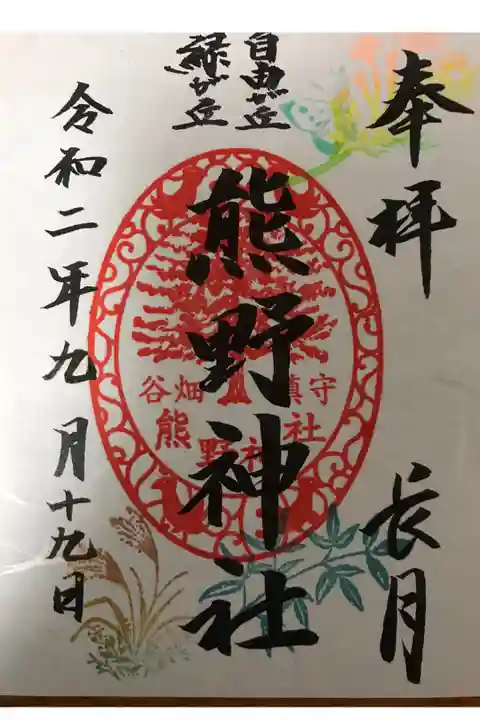 奉拝
長月
自由が丘
緑が丘
熊野神社
谷畑
鎮守
熊野神社
令和二年九月十九日